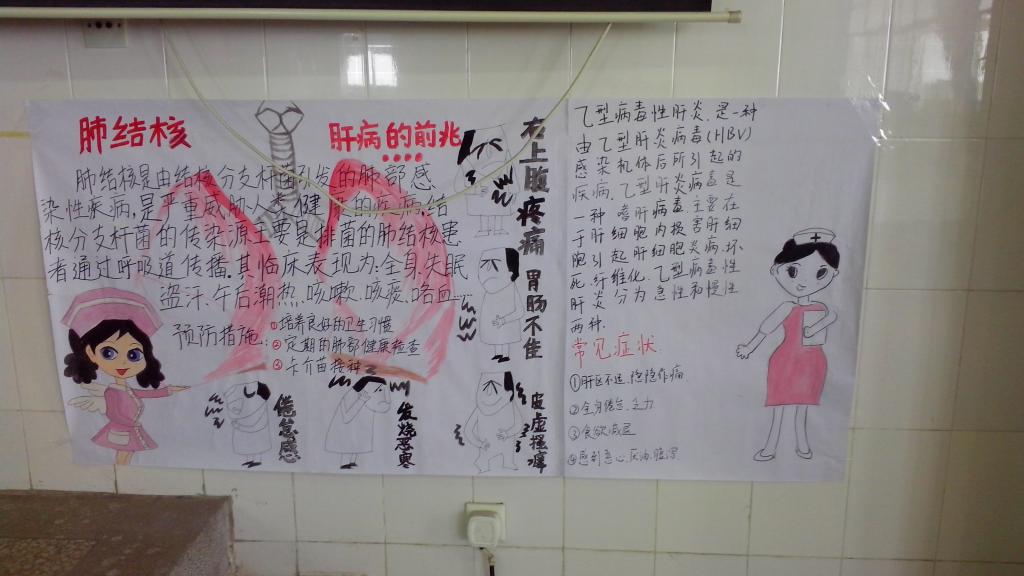 肺结核
肺结核是由结核分支杆菌引发的肺部感
染性疾病,是严重威胁人类健 的疾病.结
核分支杆菌的传染源主要是排菌的肺结核患
者通过呼吸道传播.其临床表现为:全身失眠
盗汗.午后潮热.咳嗽.咳痰.咯血...
预防措施:
①培养良好的卫生习惯
②定期的肺部健康检查
③卡介苗接种
肝病的前兆
倦怠感
发烧畏寒
右上腹疼痛
胃肠不佳
皮肤搔痒
乙型病毒性肝炎.是一种
由乙型肝炎病毒(HBV)
感染机体后所引起的
疾病.乙型肝炎病毒是
一种嗜肝病毒.主要在
于肝细胞内损害肝细
胞引起肝细胞炎病.坏
死.纤维化.乙型病毒性
肝炎分为急性和慢性
两种.
常见症状
①肝区不适.隐隐作痛
②全身倦怠.乏力
③食欲减退
④感到恶心.厌油.腹泻